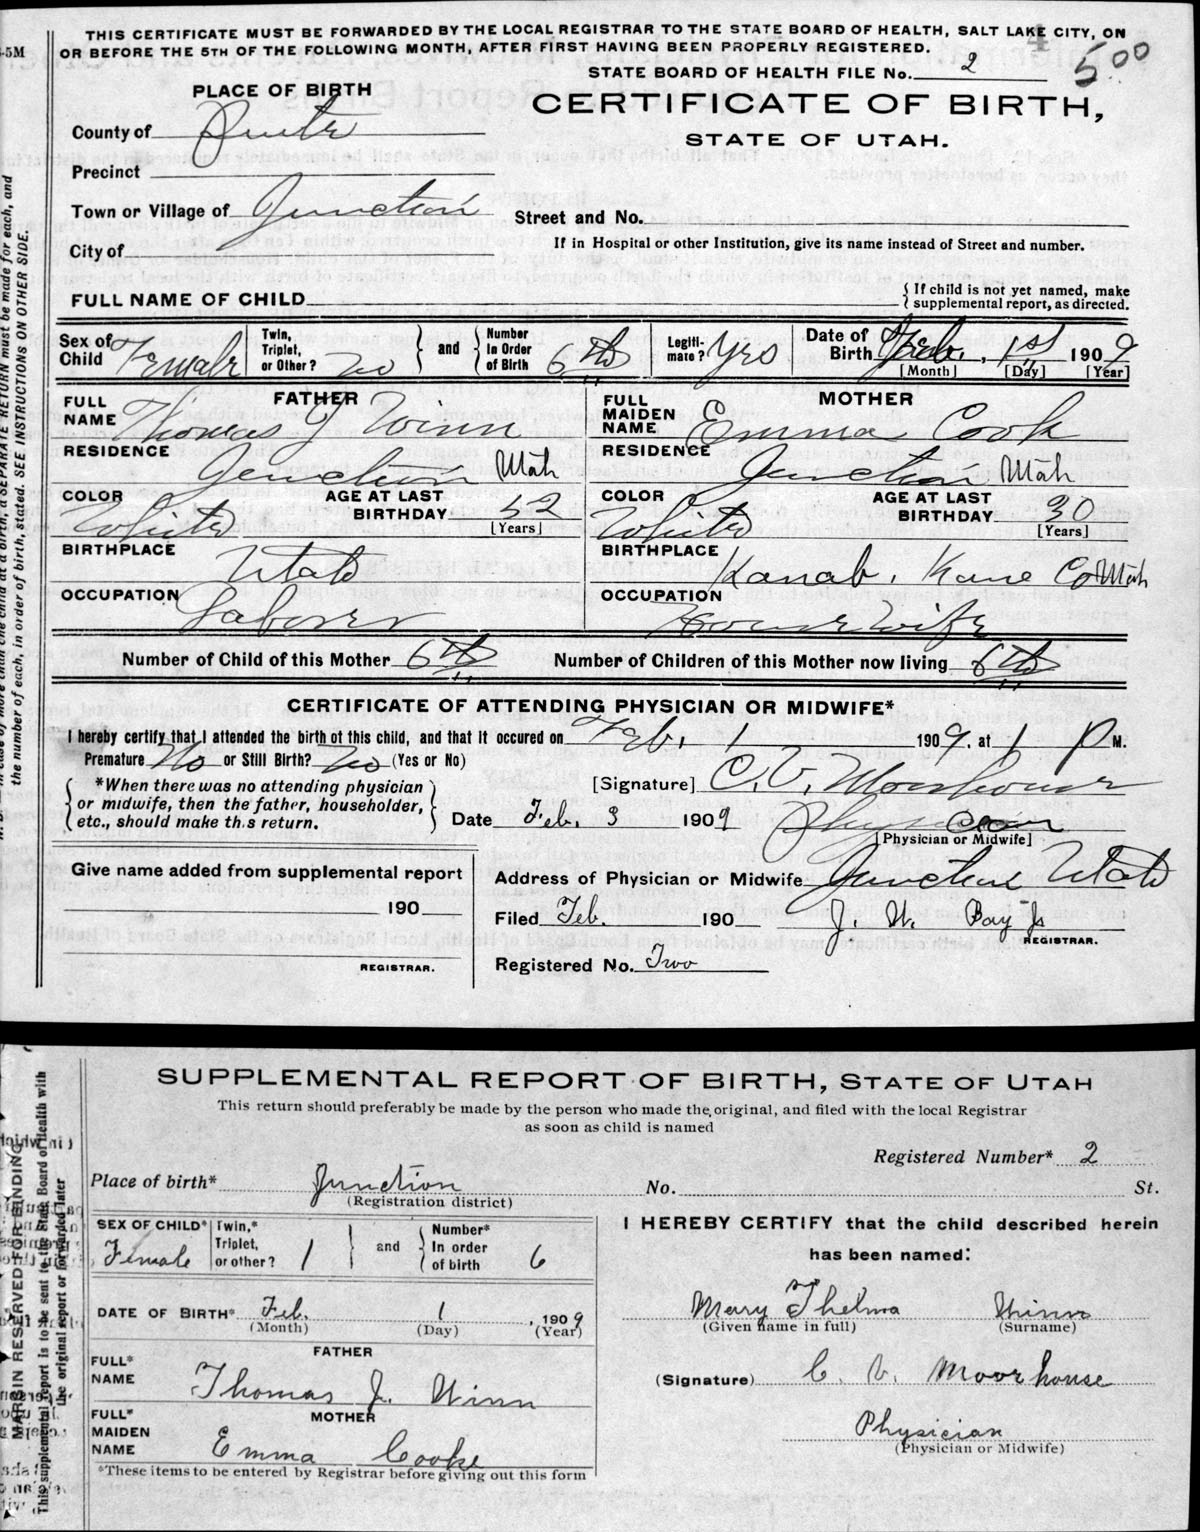 THIS CERTIFICATE MUST BE FORWARDED BY THE LOCAL REGISTRAR TO THE STATE BOARD OF HEALTH, SALT LAKE CITY, ON
OR BEFORE THE 5TH OF THE FOLLOWING MONTH, AFTER FIRST HAVING BEEN PROPERLY REGISTERED.
STATE BOARD OF HEALTH FILE No. 2
5 00
PLACE OF BIRTH
CERTIFICATE OF BIRTH,
STATE OF UTAH.
County of Piute
Precinct
Town or Village of Junction
Street and No.
City of
If in Hospital or other Institution, give its name instead of Street and number.
FULL NAME OF CHILD
{ If child is not yet named, make
supplemental report, as directed.
Sex of Child Female
Twin, Triplet, or Other? No
and
Number In Order of Birth 6th
Legiti-mate? Yes
Date of Birth Feb. 1st 1909
[Month] [Day] [Year]
FATHER
FULL NAME Thomas J Winn
RESIDENCE Junction Utah
COLOR White
AGE AT LAST BIRTHDAY 52
[Years]
BIRTHPLACE Utah
OCCUPATION Laborer
MOTHER
FULL MAIDEN NAME Emma Cook
RESIDENCE Junction Utah
COLOR White
AGE AT LAST BIRTHDAY 30
[Years]
BIRTHPLACE Kanab, Kane Co Utah
OCCUPATION House Wife
Number of Child of this Mother 6th
Number of Children of this Mother now living 6th
CERTIFICATE OF ATTENDING PHYSICIAN OR MIDWIFE*
I hereby certify that I attended the birth of this child, and that it occured on Feb. 1 1909, at 1 P M.
Premature No or Still Birth? No (Yes or No)
[Signature] C. V. Moorhouse
*When there was no attending physician
or midwife, then the father, householder,
etc., should make this return.
Date Feb. 3 1909
Physician
[Physician or Midwife]
Give name added from supplemental report
190
REGISTRAR.
Address of Physician or Midwife Junction Utah
Filed Feb. 190
J. W. Bay Jr
REGISTRAR.
Registered No. Two
the number of each, in order of birth, stated. SEE INSTRUCTIONS ON OTHER SIDE.
SUPPLEMENTAL REPORT OF BIRTH, STATE OF UTAH
This return should preferably be made by the person who made the original, and filed with the local Registrar
as soon as child is named
Registered Number* 2
Place of birth* Junction
No. St.
(Registration district)
SEX OF CHILD* Female
Twin,* Triplet, or other? 1
and
Number* In order of birth 6
DATE OF BIRTH* Feb. 1, 1909
(Month) (Day) (Year)
FATHER
FULL* NAME Thomas J. Winn
MOTHER
FULL* MAIDEN NAME Emma Cooke
*These items to be entered by Registrar before giving out this form
I HEREBY CERTIFY that the child described herein
has been named:
Mary Thelma Winn
(Given name in full) (Surname)
(Signature) C. V. Moorhouse
Physician
(Physician or Midwife)
MARGIN RESERVED FOR BINDING
This supplemental report is to be sent to the State Board of Health with
the original report or forwarded later